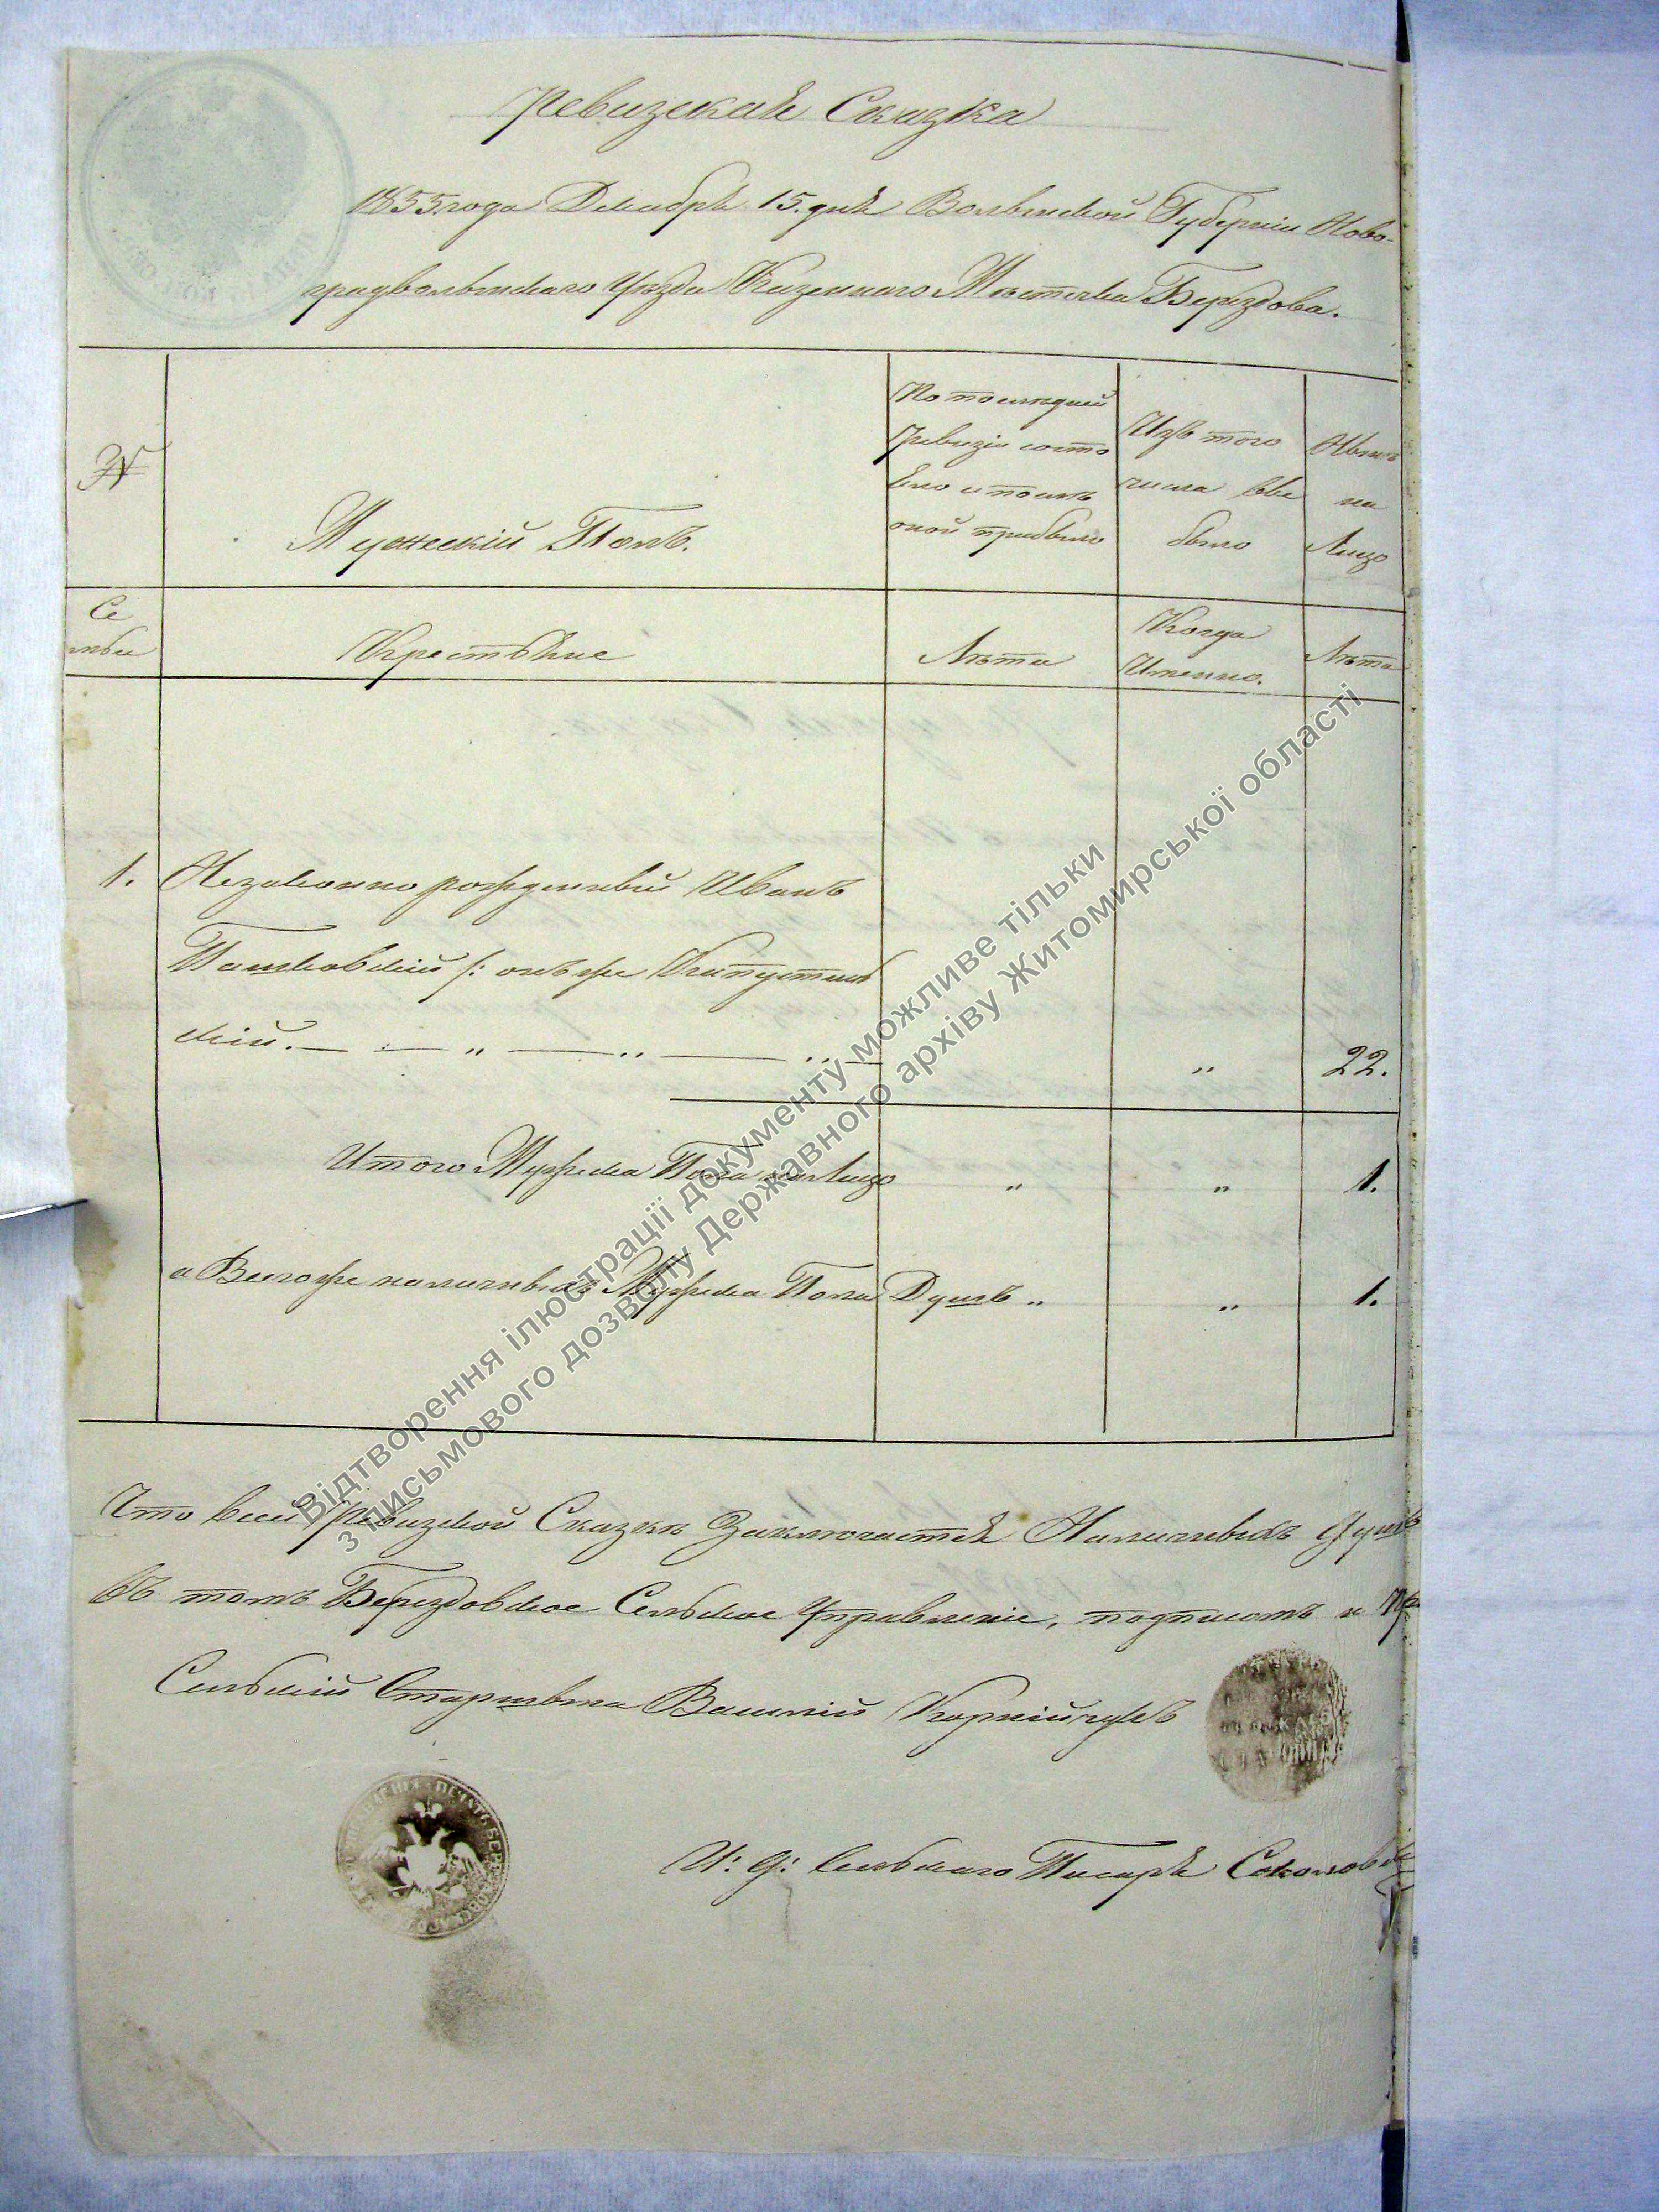 Ревизская Сказка
1855 года Декабря 15. дня Волынской Губерніи Ново-
градволынскаго Уезда Казеннаго Мѣстечка Берездова.
№
Мужескій Полъ.
По последней
Ревизіи состо
яло и послѣ
оной прибыло
Изъ того
числа выбыло
Нынѣ
на
Лицо
Се
мьи
Крестьяне
Лѣта
Когда
Именно.
Лѣта
1. Незаконно рожденный Иванъ
Пашковскій /: онъ же Капустин
скій. — „ — „ — „ 22.
Итого Мужеска Пола на Лицо „ „ 1.
а Всего же наличныхъ Мужеска Пола Душъ „ „ 1.
Что в сей Ревизской Сказки Заключается Наличныхъ душъ
въ томъ Берездовское Сельское Управленіе, подписомъ и
Сельскій Старшина Василій Корнійчукъ
И: д: Сельскаго Писаря
Відтворення ілюстрації документу можливе тільки
з письмового дозволу Державного архіву Житомирської області